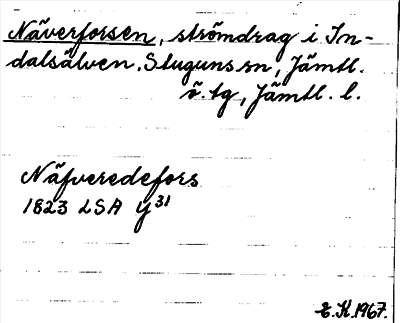 Näverforsen, strömdrag i In-
dalsälven. Stuguns sn, Jämtl.
ö. tg, Jämtl. l.
Näfveredefors
1823 LSA Y³¹
E. K. 1967.